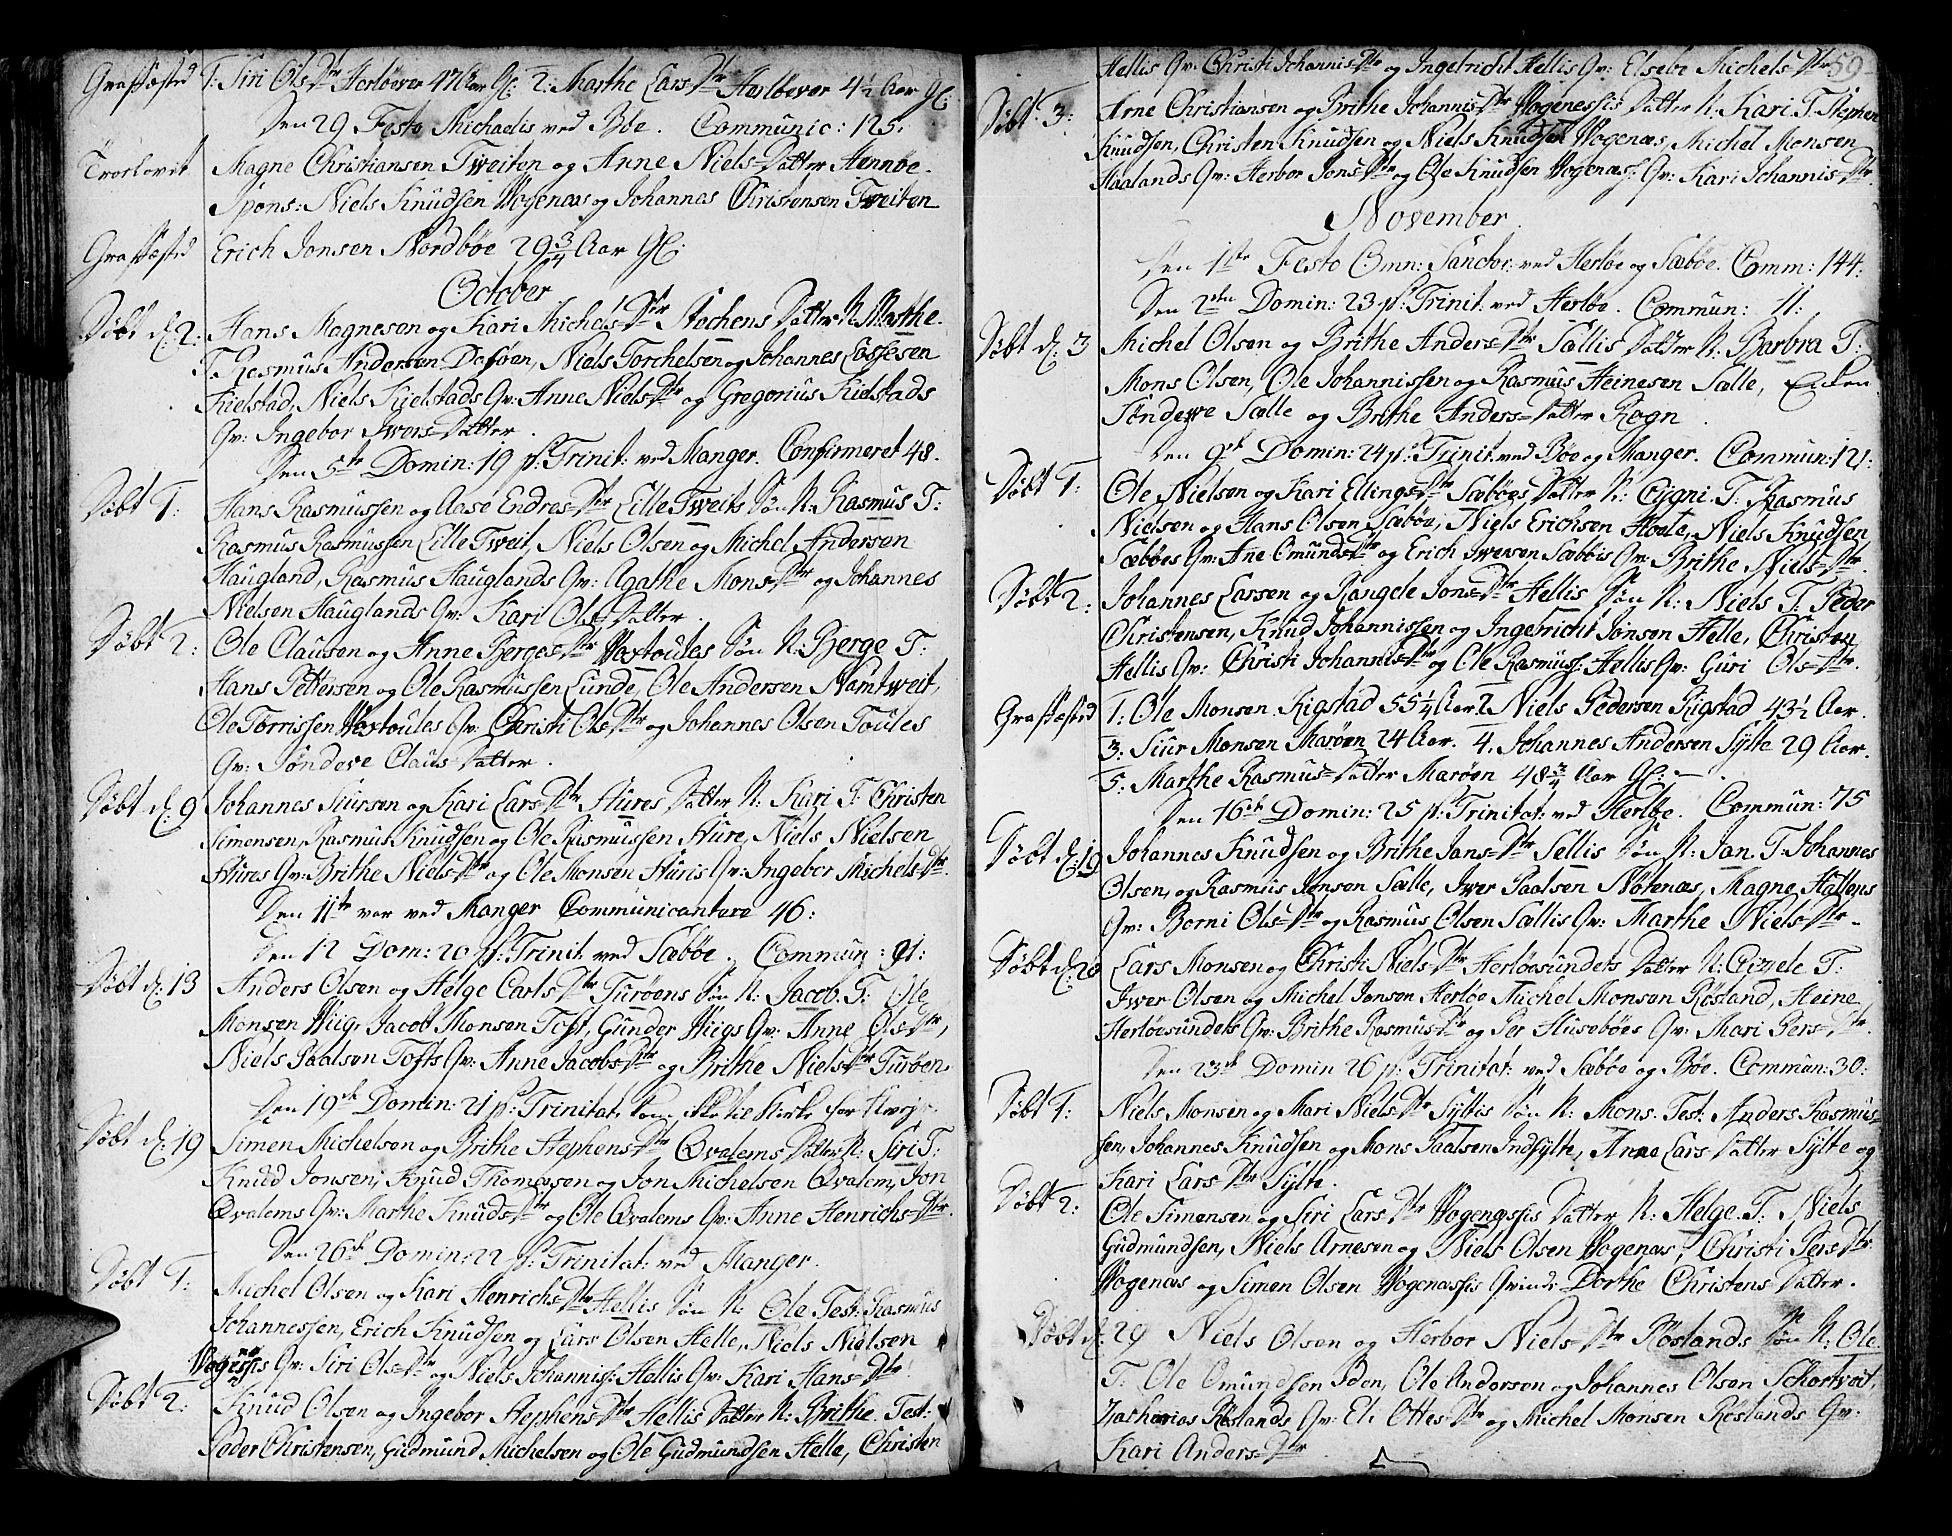 Grafæsted 1: Siri Ols-Dtr Herløever 47 Aar Gl: 2: Marthe Lars-Dtr Herløever 4½ Aar Gl:
Den 29 Festo Michaelis ved Bøe. Communic: 125.
Troelovit Magne Christiansen Tweiten og Anne Niels-Datter Hennøe.
Spons: Niels Knudsen Wogenæs og Johannes Christensen Tweiten
Grafæsted Erich Jonsen Nordbøe 29¾ Aar Gl:
October
Døbt d: 2: Hans Magnesen og Kari Michels-Dtr Stochens Datter N: Marthe.
T. Rasmus Andersen Dahøen, Niels Torchelsen og Johannes Lassesen
Kielstad, Niels Kjelstads Qv: Anne Niels-Dtr og Gregorius Kielstads
Qv: Ingebor Iwers-Datter.
Den 5te Domin: 19 p. Trinit: ved Manger. Confirmeret 48.
Døbt 1: Hans Rasmussen og Aase Endres-Dtr Lille Tweits Søn N: Rasmus T:
Rasmus Rasmussen Lille Tweit, Niels Olsen og Michel Andersen
Haugland, Rasmus Hauglands Qv: Agathe Mons-Dtr og Johannes
Nielsen Hauglands Qv: Kari Ols-Datter.
Døbt 2: Ole Clausen og Anne Berges-Dtr Waxtoules Søn N: Berge T:
Hans Pettersen og Ole Rasmussen Lunde, Ole Andersen Namtweit,
Ole Tørrissen Waxtoules Qv: Christi Ols-Dtr og Johannes Olsen Toules
Qv: Søndeve Claus-Datter.
Døbt d: 9 Johannes Siursen og Kari Lars-Dtr Hures Datter N: Kari T: Christen
Simonsen, Rasmus Knudsen og Ole Rasmussen Hure, Niels Nielsen
Hures Qv: Brithe Niels-Dtr og Ole Monsen Huris Qv: Ingebor Michels-Dtr.
Den 11te var ved Manger Communicantere 46:
Den 12 Dom: 20 p. Trinit. ved Sæbøe. Commun: 91:
Døbt d: 13 Anders Olsen og Helge Carls-Dtr Turøens Søn N: Jacob. T: Ole
Monsen Wiig, Jacob Monsen Toft, Gunder Wiigs Qv: Anne Ols-Dtr,
Niels Paalsen Tofts Qv: Anne Jacobs-Dtr og Brithe Niels-Dtr Turøen.
Den 19de Domin: 21 p. Trinitat. kom ikke til Kirke for Uveir.
Døbt d: 19 Simen Michelsen og Brithe Stephens-Dtr Qvalems Datter N: Siri T:
Knud Jonsen, Knud Thomæsen og Jon Michelsen Qvalem, Jon
Qvalems Qv: Marthe Knuds-Dtr og Ole Qvalems Qv: Anne Henrichs-Dtr.
Den 26de Domin: 22 p. Trinitat: ved Manger.
Døbt 1: Michel Olsen og Kari Henrichs-Dtr Hellis Søn N: Ole Test: Rasmus
Johannessen, Erich Knudsen og Lars Olsen Helle, Niels Nielsen
Wogenæssis Qv: Siri Ols-Dtr og Niels Johanniss: Hellis Qv: Kari Hans-Dtr.
Døbt 2: Knud Olsen og Ingebor Stephens-Dtr Hellis Datter N: Brithe. Test:
Peder Christensen, Gudmund Michelsen og Ole Gudmundsen Helle, Christen
Hellis Qv: Christi Johannis-Dtr og Ingebricht Hellis Qv: Elsebe Michels-Dtr 59
Døbt 3: Arne Christiansen og Brithe Johannis-Dtr Wogenessis Datter N: Kari T. Stephen
Knudsen, Christen Knudsen og Niels Knudsen Wogenæs, Michel Monsen
Haalands Qv: Herbor Jons-Dtr og Ole Knudsen Wogenæs: Qv: Kari Johannis-Dtr.
November.
Den 1ste Festo Omn: Sanctor: ved Herløe og Sæbøe. Comm: 144.
Den 2den Domin: 23 p. Trinit: ved Herløe. Commun: 11:
Døbt d: 3 Michel Olsen og Brithe Anders-Dtr Sællis Datter N: Barbra T:
Mons Olsen, Ole Johannissen og Rasmus Heinesen Sælle, Enken
Søndewe Sælle og Brithe Anders-Datter Rogn.
Den 9de Domin: 24 p. Trinit. ved Bøe og Manger. Commun: 121:
Døbt 1: Ole Nielsen og Kari Ellings-Dtr Sæbøes Datter N: Cygni. T: Rasmus
Nielsen og Hans Olsen Sæbøe, Niels Erichsen Hoele, Niels Knudsen
Sæbøes Qv: Ane Omunds-Dtr og Erich Iwersen Sæbøis Qv: Brithe Niels-Dtr.
Døbt 2: Johannes Larsen og Rangele Jons-Dtr Hellis Søn N: Niels T: Peder
Christensen, Knud Johannissen og Ingebricht Jonsen Helle, Christen
Hellis Qv: Christi Johannis-Dtr og Ole Rasmuss: Hellis Qv: Guri Ols-Dtr.
Grafæsted 1: Ole Monsen Rigstad 55¼ Aar 2 Niels Pedersen Rigstad 43½ Aar.
3: Siur Monsen Marøen 24 Aar. 4. Johannes Andersen Sylte 29 Aar.
5. Marthe Rasmus-Datter Marøen 48¾ Aar Gl:
Den 16de Domin: 25 p. Trinitat: ved Herløe. Commun: 75
Døbt d: 19 Johannes Knudsen og Brithe Jans-Dtr Sellis Søn N: Jan. T: Johannes
Olsen, og Rasmus Jonsen Sælle, Iwer Paalsen Nótenæs, Magne Hattens
Qv: Borni Ols-Dtr og Rasmus Olsen Sællis Qv: Marthe Niels-Dtr
Døbt d: 20 Lars Monsen og Christi Niels-Dtr Herløesundets Datter N: Cizele T:
Iwer Olsen og Michel Jonsen Herløe Michel Monsen Røsland, Heine
Herløesundets Qv: Brithe Rasmus-Dtr og Per Husebøes Qv: Mari Pers-Dtr.
Den 23de Domin 26 p. Trinitat: ved Sæbøe og Bøe. Commun: 30:
Døbt 1: Niels Monsen og Mari Niels-Dtr Syltis Søn N: Mons. Test: Anders Rasmus-
sen, Johannes Knudsen og Mons Paalsen Indsylte, Anne Lars-Datter Sylte og
Kari Lars-Dtr Sylte.
Døbt 2: Ole Simensen og Siri Lars-Dtr Wogenæssis Datter N: Helge. T: Niels
Gudmundsen, Niels Arnesen og Niels Olsen Wogenæs, Christi Pers-Dtr
Wogenæs og Simen Olsen Wogenæssis Qvinde Dorthe Christens Datter.
Døbt d: 29 Niels Olsen og Herbor Niels-Dtr Røslands Søn N: Ole.
T: Ole Omundsen Iden, Ole Andersen og Johannes Olsen Schortveit,
Zacharias Røslands Qv: Eli Ottes-Dtr og Michel Monsen Røslands Qv:
Kari Anders-Dtr